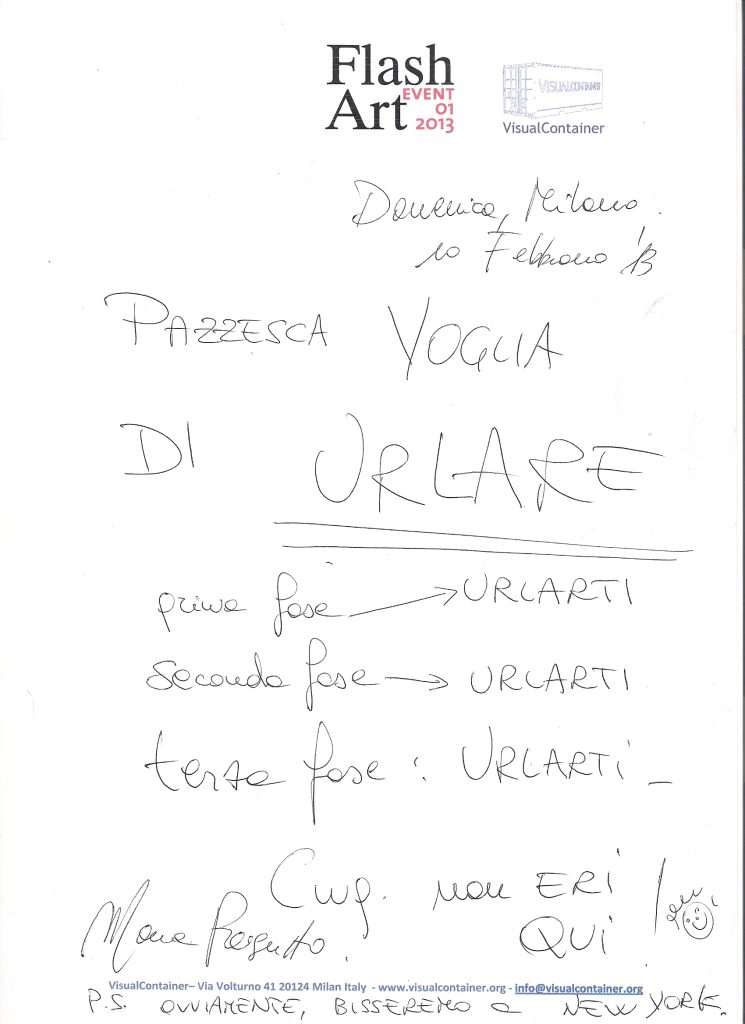 Flash
Art
EVENT
01
2013
VISUALCONTAINER
VisualContainer
Domenica, Milano,
10 Febbraio '13
PAZZESCA VOGLIA
DI URLARE
prima fase → URLARTI
seconda fase → URLARTI
terza fase : URLARTI _
Cmq. non ERI
QUI
VisualContainer– Via Volturno 41 20124 Milan Italy - www.visualcontainer.org - info@visualcontainer.org
P.S. OVVIAMENTE, BISSEREMO a NEW YORK.